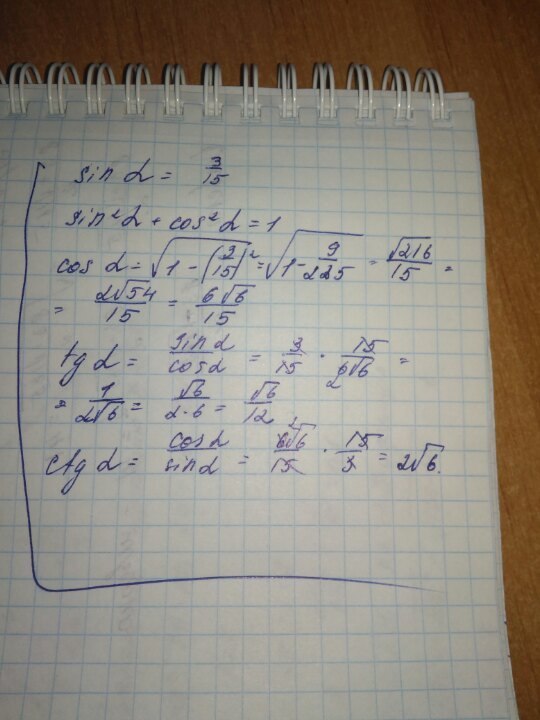 sin α = 3/15
sin²α + cos²α = 1
cos α = √(1 - (3/15)²) = √(1 - 9/225) = √216/15 =
= 2√54/15 = 6√6/15
tg α = sin α/cos α = 3/15 · 15/6√6 =
2
= 1/2√6 = √6/2·6 = √6/12
ctg α = cos α/sin α = 6√6/15 · 15/3 = 2√6.
2